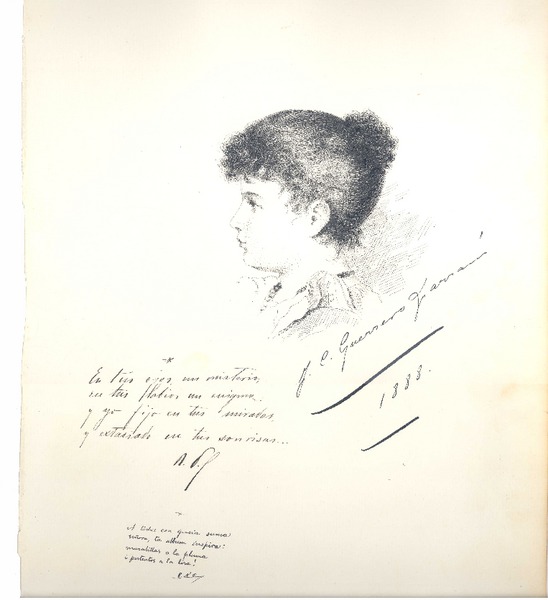 J. C. Guerrero Larrañ
1888.
En tus ojos un misterio,
en tus labios un enigma.
y yo fijo en tus miradas,
y extasiado en tus sonrisas...
R. D.
A todos con gracia suma
tu album inspira:
maravillas a la pluma
i portentos a la lira!